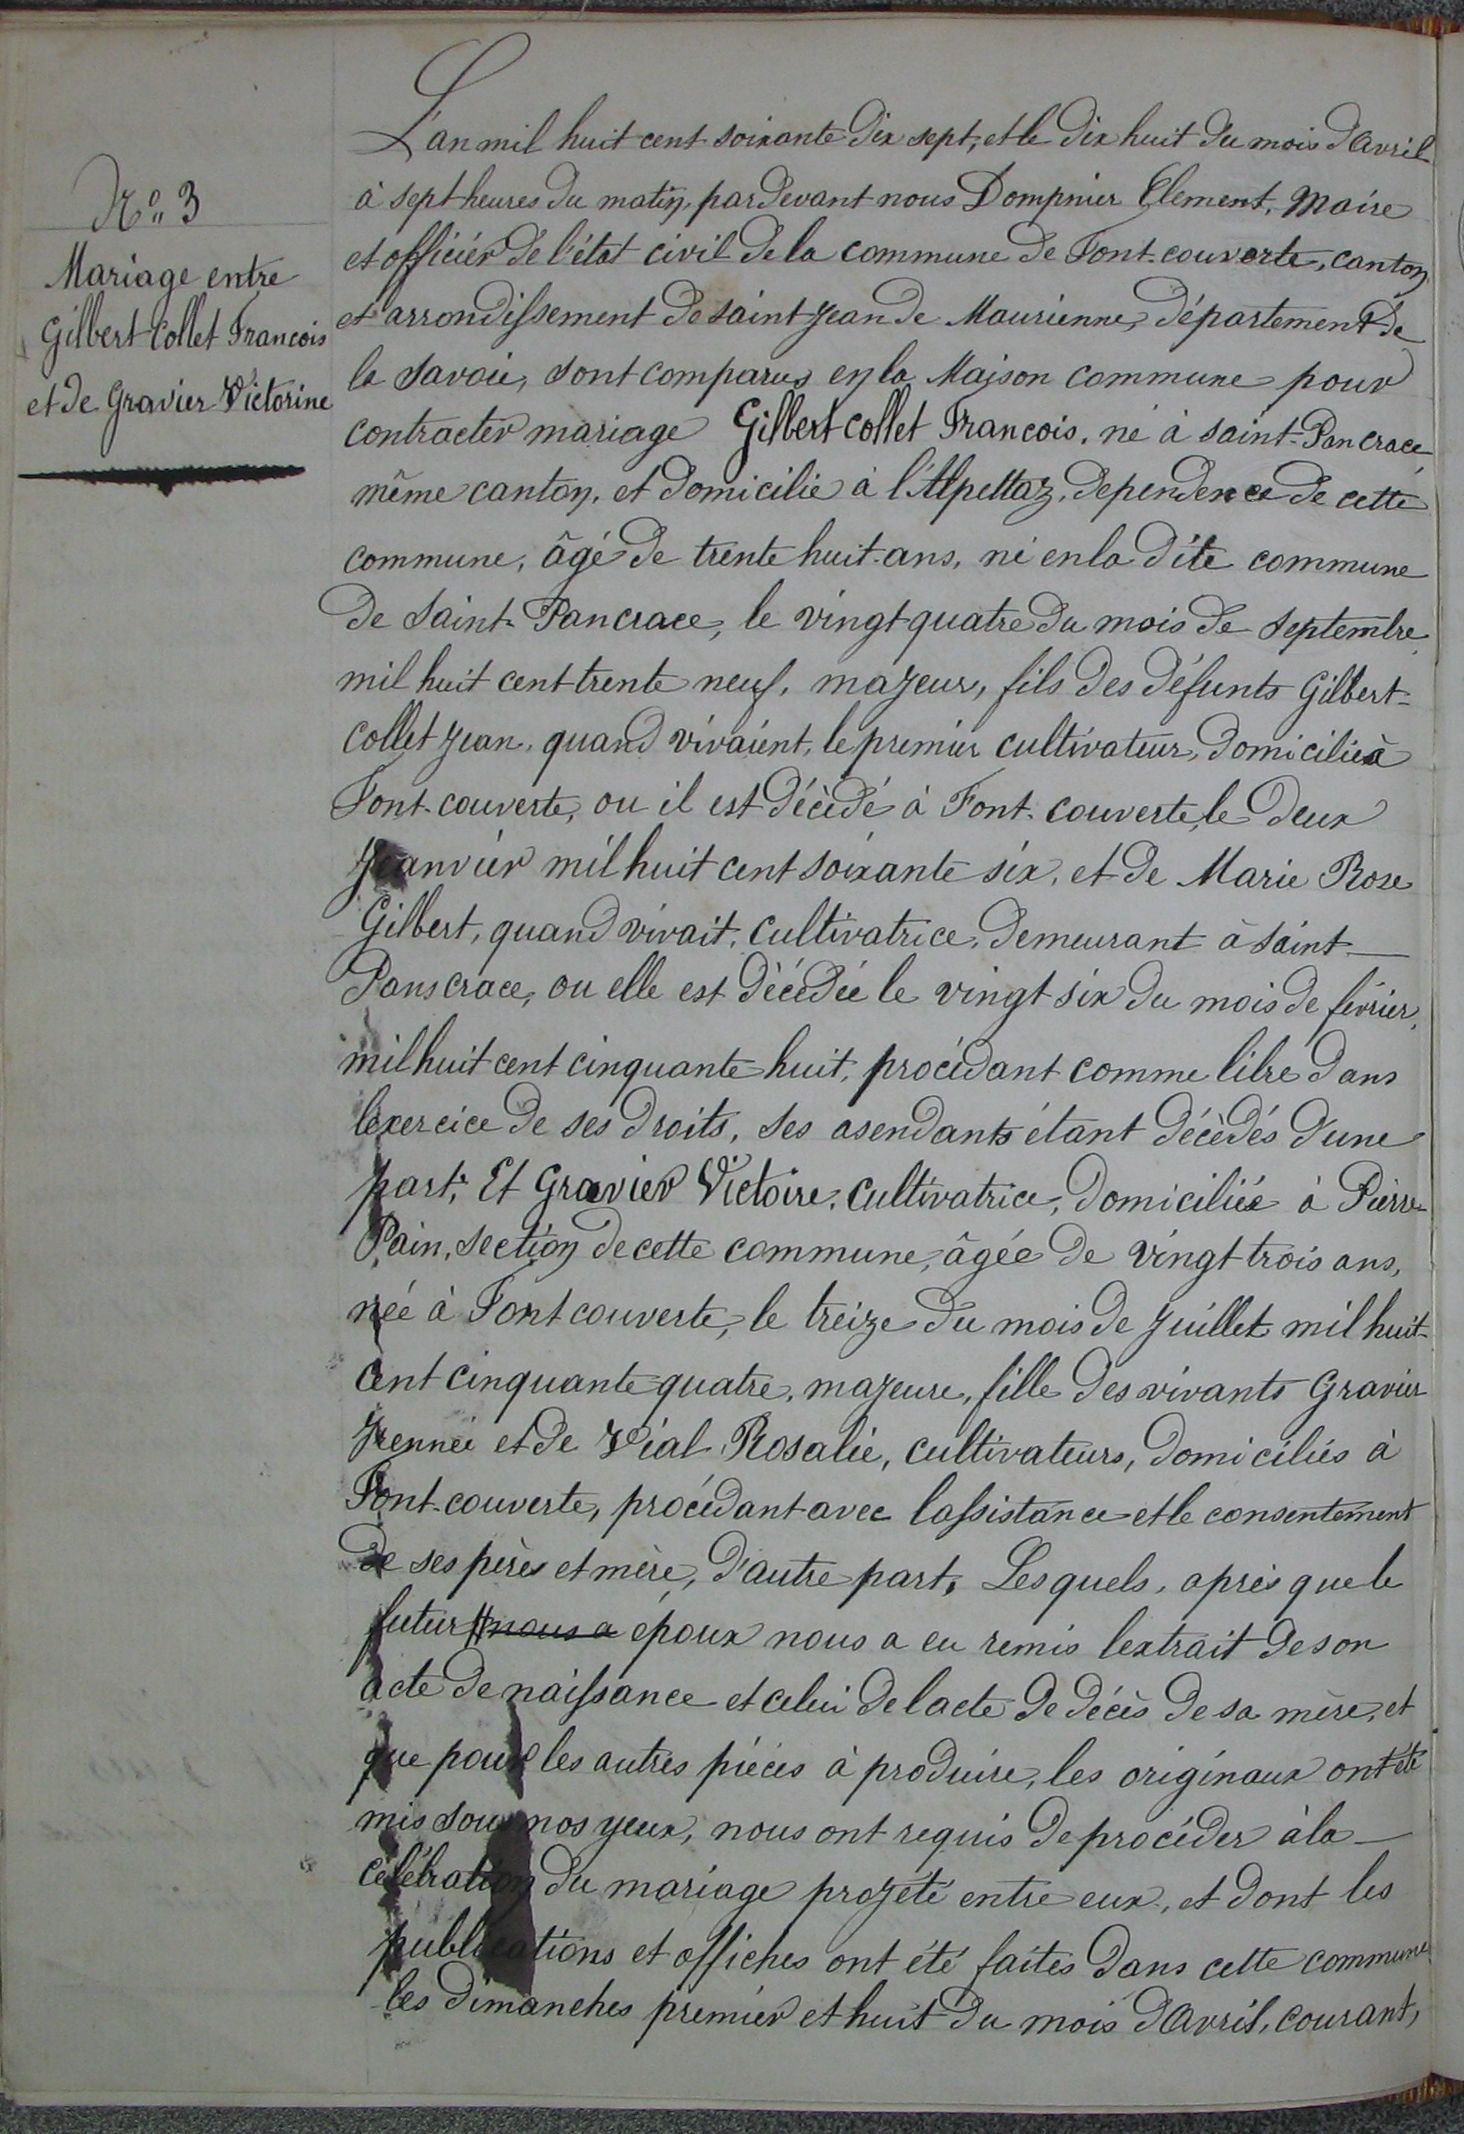 N°. 3
Mariage entre
Gilbert-Collet Francois
et de Gravier Victorine
L'an mil huit cent soixante dix sept, et le dix huit du mois d'avril
à sept heures du matin, pardevant nous Dompnier Clement, Maire
et officiér de l'état civil de la commune de Font-couverte, canton
et arrondissement de saint Jean de Maurienne, département de
la Savoie, sont comparus en la Maison commune pour
contracter mariage Gilbert collet Francois, né à saint-Pancrace,
même canton, et domicilié à l'Alpettaz, dependence de cette
commune, âgé de trente huit ans, né en la dite commune
de Saint-Pancrace, le vingt quatre du mois de septembre,
mil huit cent trente neuf, majeur, fils des défunts Gilbert-
collet Jean, quand vivaient, le premier cultivateur, domicilié à
Font-couverte, ou il est décèdé à Font-couverte, le deux
Janviér mil huit cent soixante six, et de Marie Rose
Gilbert, quand vivait, cultivatrice, demeurant à saint-
Panscrace, ou elle est décédée le vingt six du mois de février,
mil huit cent cinquante huit, procédant comme libre dans
lexercice de ses droits, ses asendants étant décèdés d'une
part; Et Gravier Victoire, cultivatrice, domiciliée à Pierre-
Pain, section de cette commune, âgée de vingt trois ans,
née à Font couverte, le treize du mois de Juillet mil huit-
cent cinquante quatre, majeure, fille des vivants Gravier
Jennée et de Vial Rosalie, cultivateurs, domiciliés à
Font-couverte, procédant avec lassistance et le consentement
de ses pères et mère, d'autre part, Lesquels, après que le
futur nous a époux nous a eu remis lextrait de son
acte de naissance et celui de lacte de décès de sa mère, et
que pour les autres piéces à produire, les originaux ont été
mis sous nos yeux, nous ont requis de procéder à la
célébration du mariage projété entre eux, et dont les
publications et affiches ont été faites dans cette commune
les dimanches premiér et huit du mois d'Avril, courant,